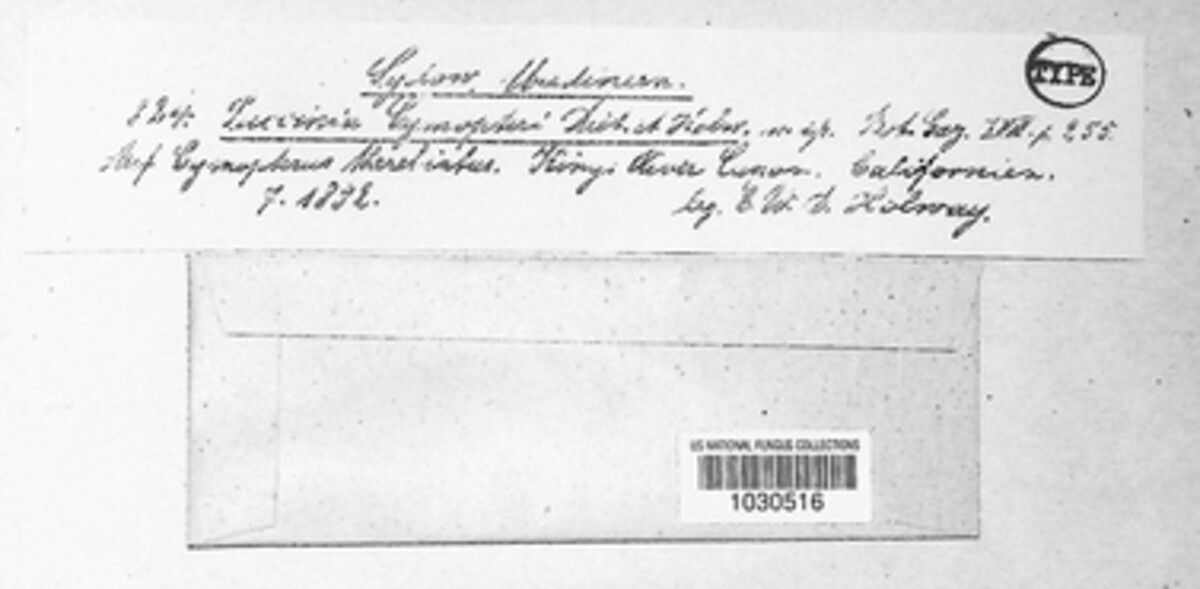 Sydow, Uredineen.
TYPE
Puccinia Cymopteri Diet. et Holw. n. sp. Bot. Gaz. XVIII. p. 255.
Auf Cymopterus Kings River Canon. Californien.
7. 1892. leg. E. W. D. Holway.
US NATIONAL FUNGUS COLLECTIONS
1030516